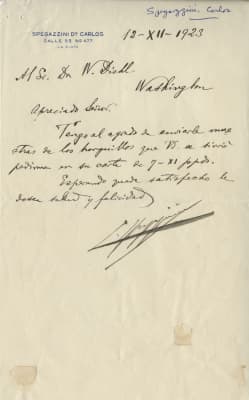 Spegazzini, Carlos
SPEGAZZINI Dr CARLOS
CALLE 53 No 477
LA PLATA
12-XII-1923
Al Sr. Dr W. Diehl
Washington
Apreciado Señor:
Tengo el agrado de enviarle mues
tras de los honguillos que Vd. se sirvió
pedirme en su carta de 7-XI ppdo.
Esperando quede satisfecho le
deseo salud y felicidad